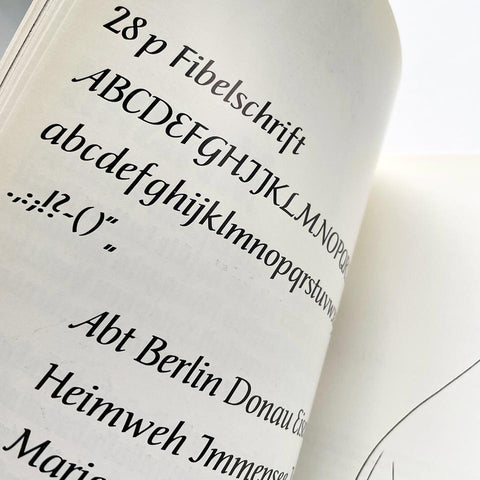 28 p Fibelschrift
ABCDEFGHIJKLMNOPQR
abcdefghijklmnopqrstuvw
.,:;!?-()“
„
Abt Berlin Donau
Heimweh Immensee